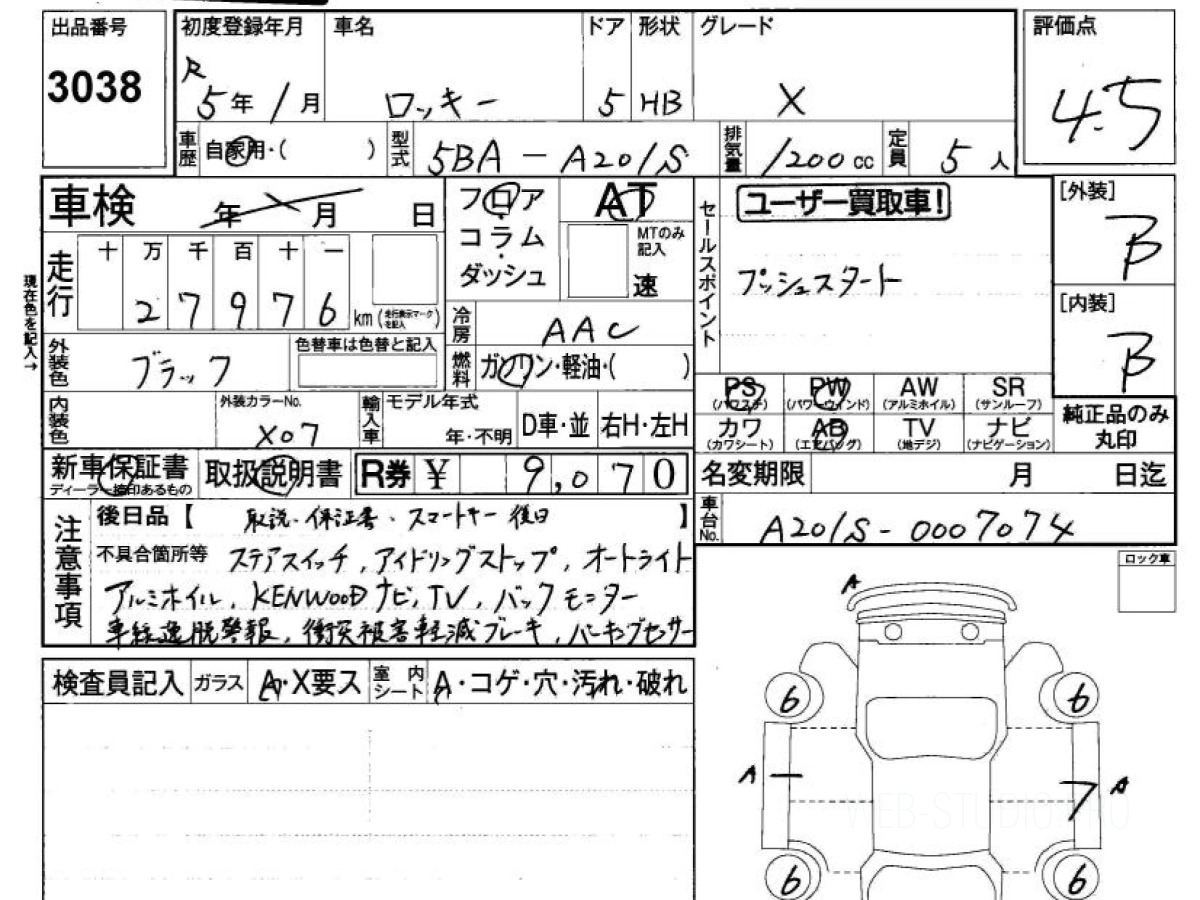 出品番号 初度登録年月 車名 ドア 形状 グレード 評価点
3038 R 5年 1月 ロッキー 5 HB X 4.5
車歴 自家用・( ) 型式 5BA-A201S 排気量 1200cc 定員 5人
車検 年 月 日
フロア AT セールスポイント ユーザー買取車! [外装]
コラム MTのみ記入 B
ダッシュ 速 プッシュスタート
現在色を記入→
走行 十 万 千 百 十 一
2 7 9 7 6 km (走行表示マークを記入) [内装]
冷房 AAC B
外装色 ブラック 色替車は色替と記入 燃料 ガソリン・軽油・( )
PS (パワステ) PW (パワーウィンド) AW (アルミホイル) SR (サンルーフ)
純正品のみ丸印
内装色 外装カラーNo. X07 輸入車 モデル年式 年・不明 D車・並 右H・左H
カワ (カワシート) AB (エアバッグ) TV (地デジ) ナビ (ナビゲーション)
新車保証書 取扱説明書 R券 ¥ 9,070 名変期限 月 日迄
ディーラー捺印あるもの
車台No. A201S-0007074
注意事項 後日品【 取説・保証書・スマートキー後日 】
不具合箇所等 ステアスイッチ, アイドリングストップ, オートライト
アルミホイル, KENWOODナビ, TV, バックモニター
車線逸脱警報, 衝突被害軽減ブレーキ, パーキングセンサー
ロック車
検査員記入 ガラス A・X要ス 室内シート A・コゲ・穴・汚れ・破れ
A
6 6
A A
7
WEB-STUDIO.PRO
6 6